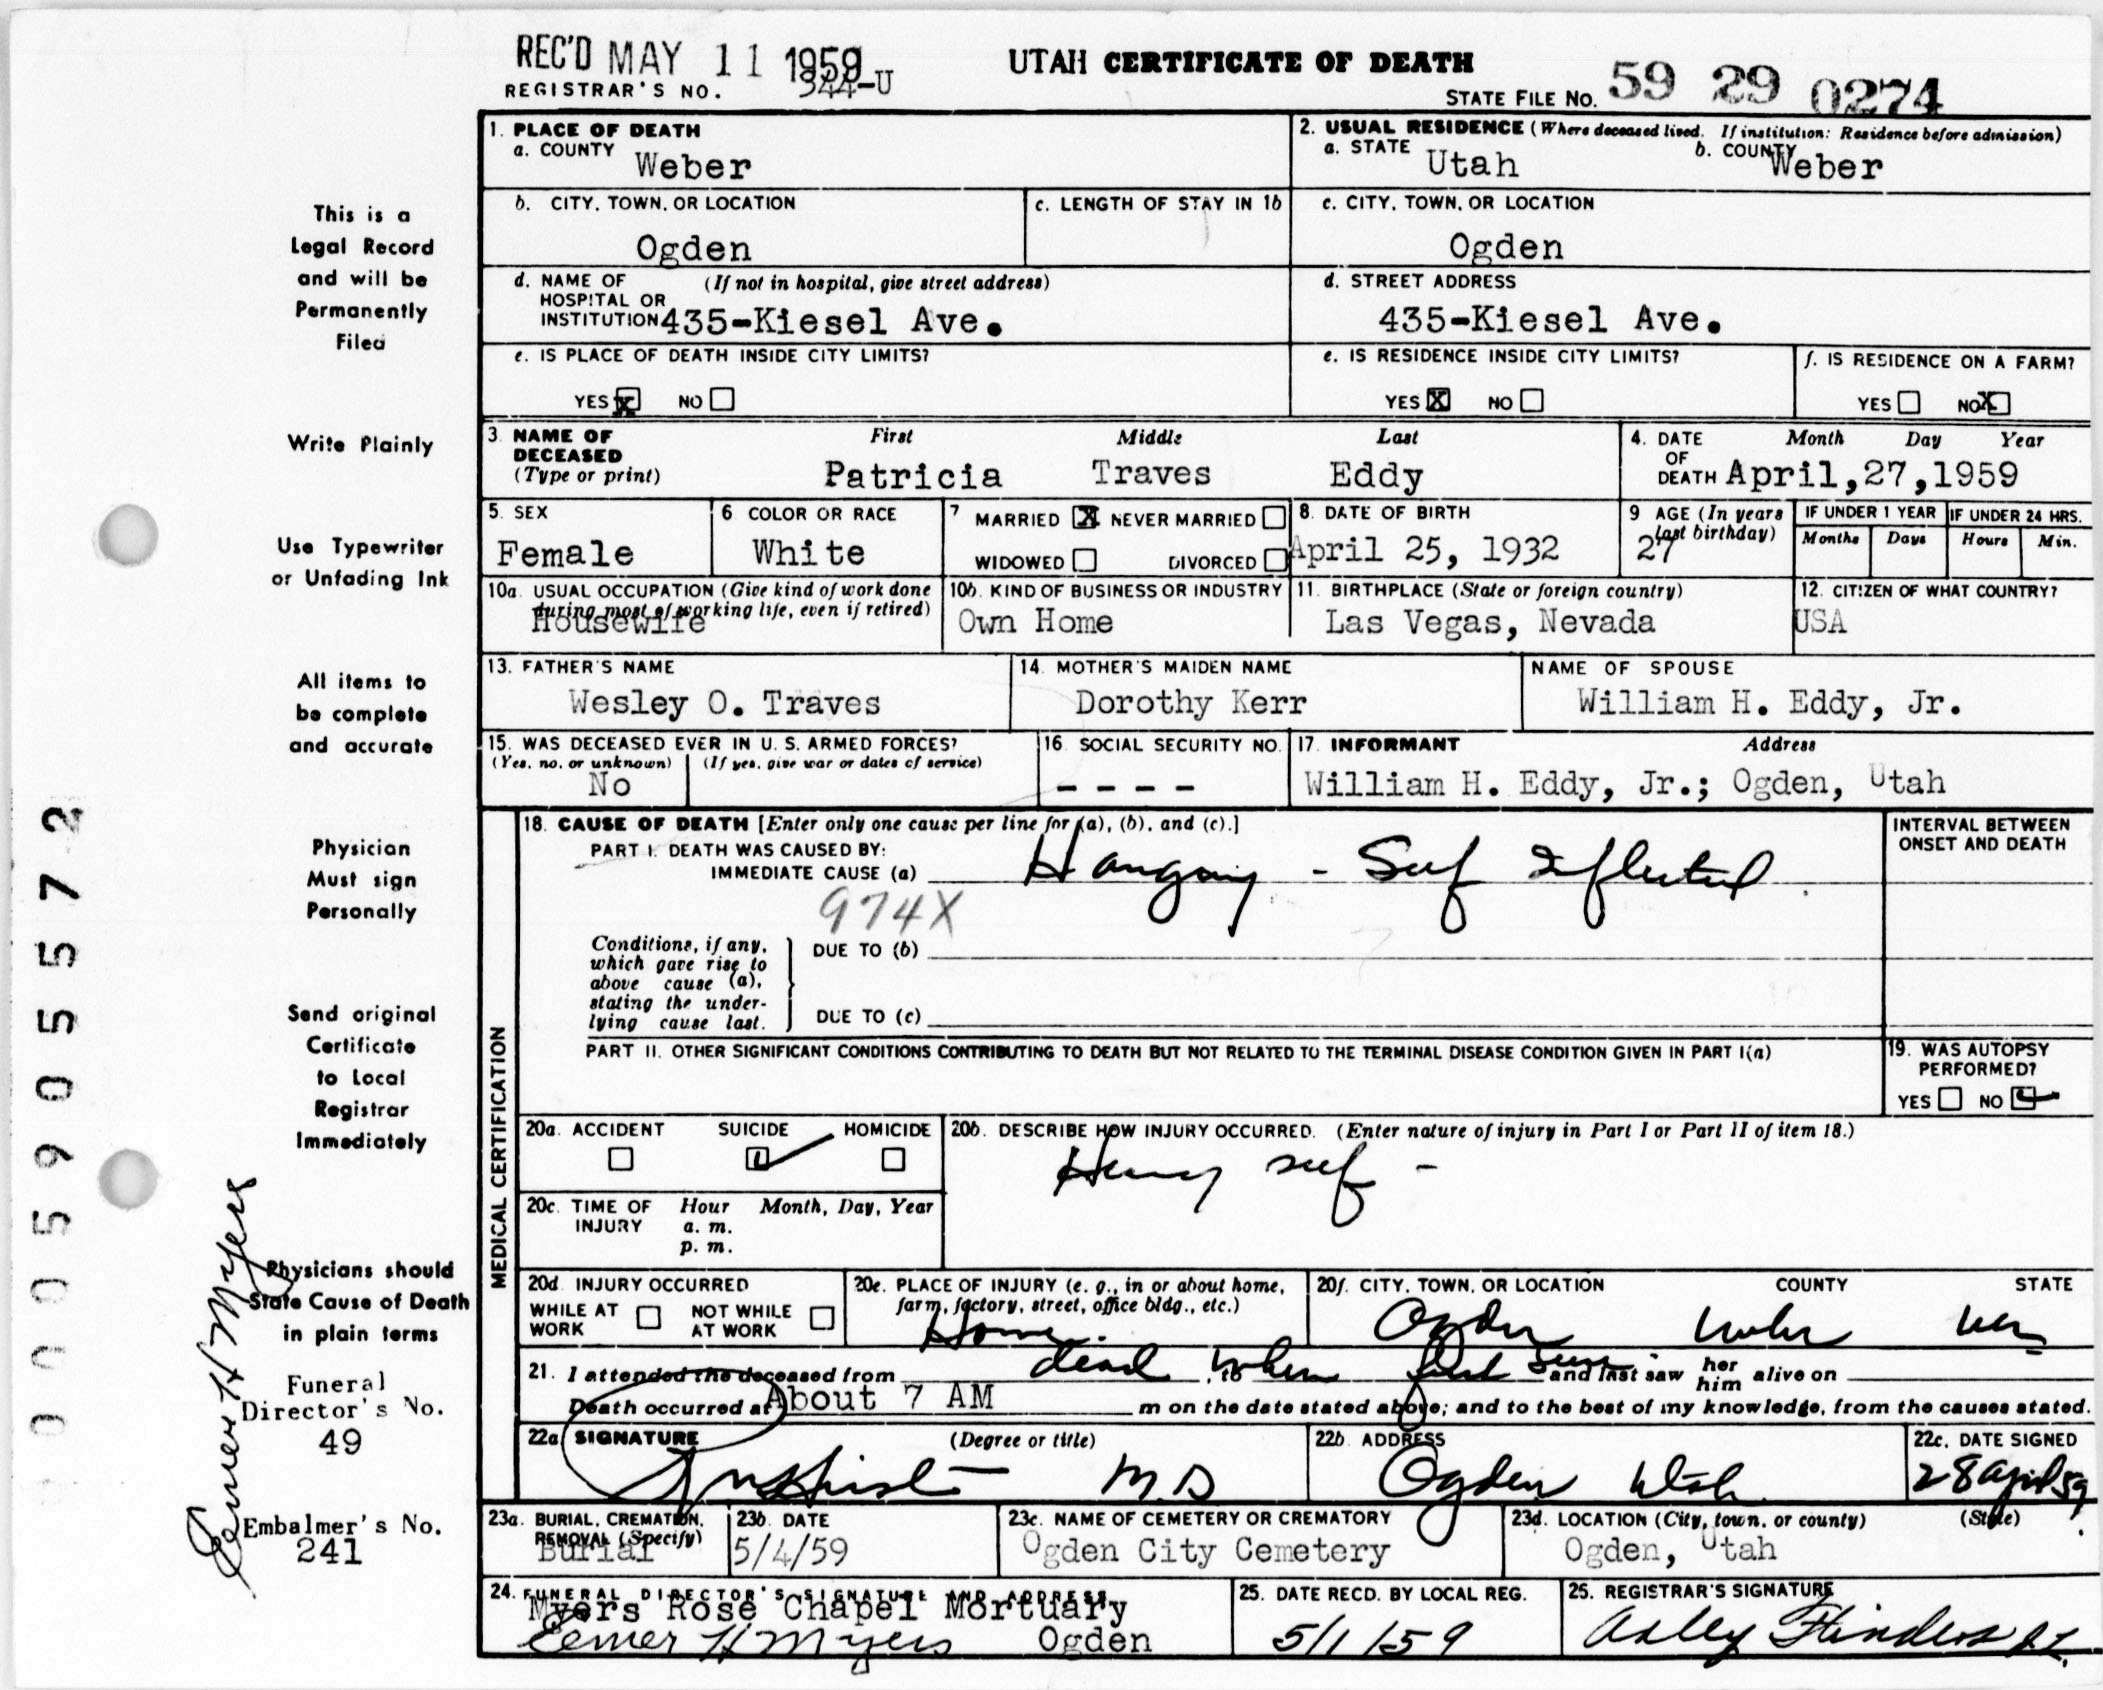 REC'D MAY 11 1959
REGISTRAR'S NO. 344-U
UTAH CERTIFICATE OF DEATH
STATE FILE NO. 59 29 0274
This is a
Legal Record
and will be
Permanently
Filed
Write Plainly
Use Typewriter
or Unfading Ink
All items to
be complete
and accurate
Physician
Must sign
Personally
Send original
Certificate
to Local
Registrar
Immediately
Physicians should
State Cause of Death
in plain terms
Funeral
Director's No.
49
Embalmer's No.
241
Elmer H Myers
0005905572
1. PLACE OF DEATH
a. COUNTY Weber
2. USUAL RESIDENCE (Where deceased lived. If institution: Residence before admission)
a. STATE Utah b. COUNTY Weber
b. CITY, TOWN, OR LOCATION
Ogden
c. LENGTH OF STAY IN 1b
c. CITY, TOWN, OR LOCATION
Ogden
d. NAME OF (If not in hospital, give street address)
HOSPITAL OR
INSTITUTION 435-Kiesel Ave.
d. STREET ADDRESS
435-Kiesel Ave.
e. IS PLACE OF DEATH INSIDE CITY LIMITS?
YES X NO
e. IS RESIDENCE INSIDE CITY LIMITS?
YES X NO
f. IS RESIDENCE ON A FARM?
YES NO X
3. NAME OF DECEASED (Type or print)
First Middle Last
Patricia Traves Eddy
4. DATE OF DEATH Month Day Year
April,27,1959
5. SEX
Female
6 COLOR OR RACE
White
7 MARRIED X NEVER MARRIED
WIDOWED DIVORCED
8. DATE OF BIRTH
April 25, 1932
9 AGE (In years last birthday)
27
IF UNDER 1 YEAR
Months Days
IF UNDER 24 HRS.
Hours Min.
10a. USUAL OCCUPATION (Give kind of work done during most of working life, even if retired)
Housewife
10b. KIND OF BUSINESS OR INDUSTRY
Own Home
11. BIRTHPLACE (State or foreign country)
Las Vegas, Nevada
12. CITIZEN OF WHAT COUNTRY?
USA
13. FATHER'S NAME
Wesley O. Traves
14. MOTHER'S MAIDEN NAME
Dorothy Kerr
NAME OF SPOUSE
William H. Eddy, Jr.
15. WAS DECEASED EVER IN U. S. ARMED FORCES?
(Yes, no, or unknown) (If yes, give war or dates of service)
No
16. SOCIAL SECURITY NO.
- - - -
17. INFORMANT Address
William H. Eddy, Jr.; Ogden, Utah
MEDICAL CERTIFICATION
18. CAUSE OF DEATH [Enter only one cause per line for (a), (b), and (c).]
PART I. DEATH WAS CAUSED BY:
IMMEDIATE CAUSE (a) Hanging - Self Inflicted
974X
INTERVAL BETWEEN
ONSET AND DEATH
Conditions, if any,
which gave rise to
above cause (a),
stating the under-
lying cause last.
DUE TO (b)
DUE TO (c)
PART II. OTHER SIGNIFICANT CONDITIONS CONTRIBUTING TO DEATH BUT NOT RELATED TO THE TERMINAL DISEASE CONDITION GIVEN IN PART I(a)
19. WAS AUTOPSY
PERFORMED?
YES NO
20a. ACCIDENT SUICIDE HOMICIDE
20b. DESCRIBE HOW INJURY OCCURRED. (Enter nature of injury in Part I or Part II of item 18.)
Hung self -
20c. TIME OF INJURY Hour Month, Day, Year
a. m.
p. m.
20d. INJURY OCCURRED
WHILE AT WORK NOT WHILE AT WORK
20e. PLACE OF INJURY (e. g., in or about home, farm, factory, street, office bldg., etc.)
Home
20f. CITY, TOWN, OR LOCATION COUNTY STATE
Ogden Weber
21. I attended the deceased from dead, to when first seen and last saw her him alive on
Death occurred at About 7 AM m on the date stated above; and to the best of my knowledge, from the causes stated.
22a. SIGNATURE (Degree or title)
M.D
22b. ADDRESS
Ogden Utah
22c. DATE SIGNED
28 April 59
23a. BURIAL, CREMATION, REMOVAL (Specify)
Burial
23b. DATE
5/4/59
23c. NAME OF CEMETERY OR CREMATORY
Ogden City Cemetery
23d. LOCATION (City, town, or county) (State)
Ogden, Utah
24. FUNERAL DIRECTOR'S SIGNATURE AND ADDRESS
Myers Rose Chapel Mortuary
Elmer H Myers Ogden
25. DATE RECD. BY LOCAL REG.
5/1/59
25. REGISTRAR'S SIGNATURE
Flinders